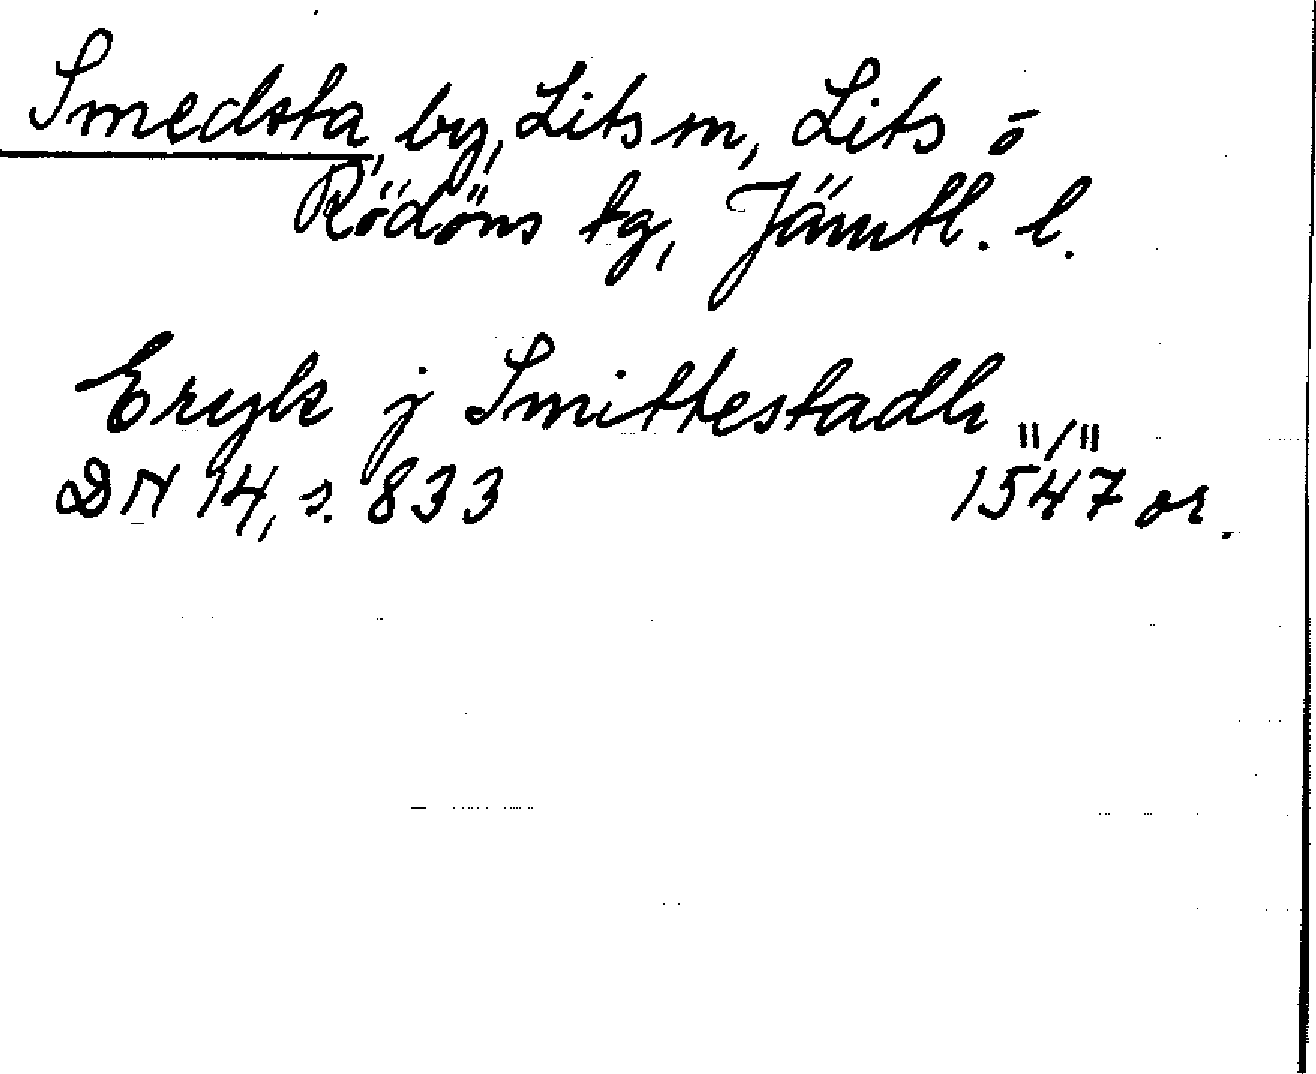 Smedsta, by, Lits sn, Lits o
Rödöns tg, Jämtl. l.
Eryk j Smittestadh
11/11
DN 14, s. 833 1547 or.